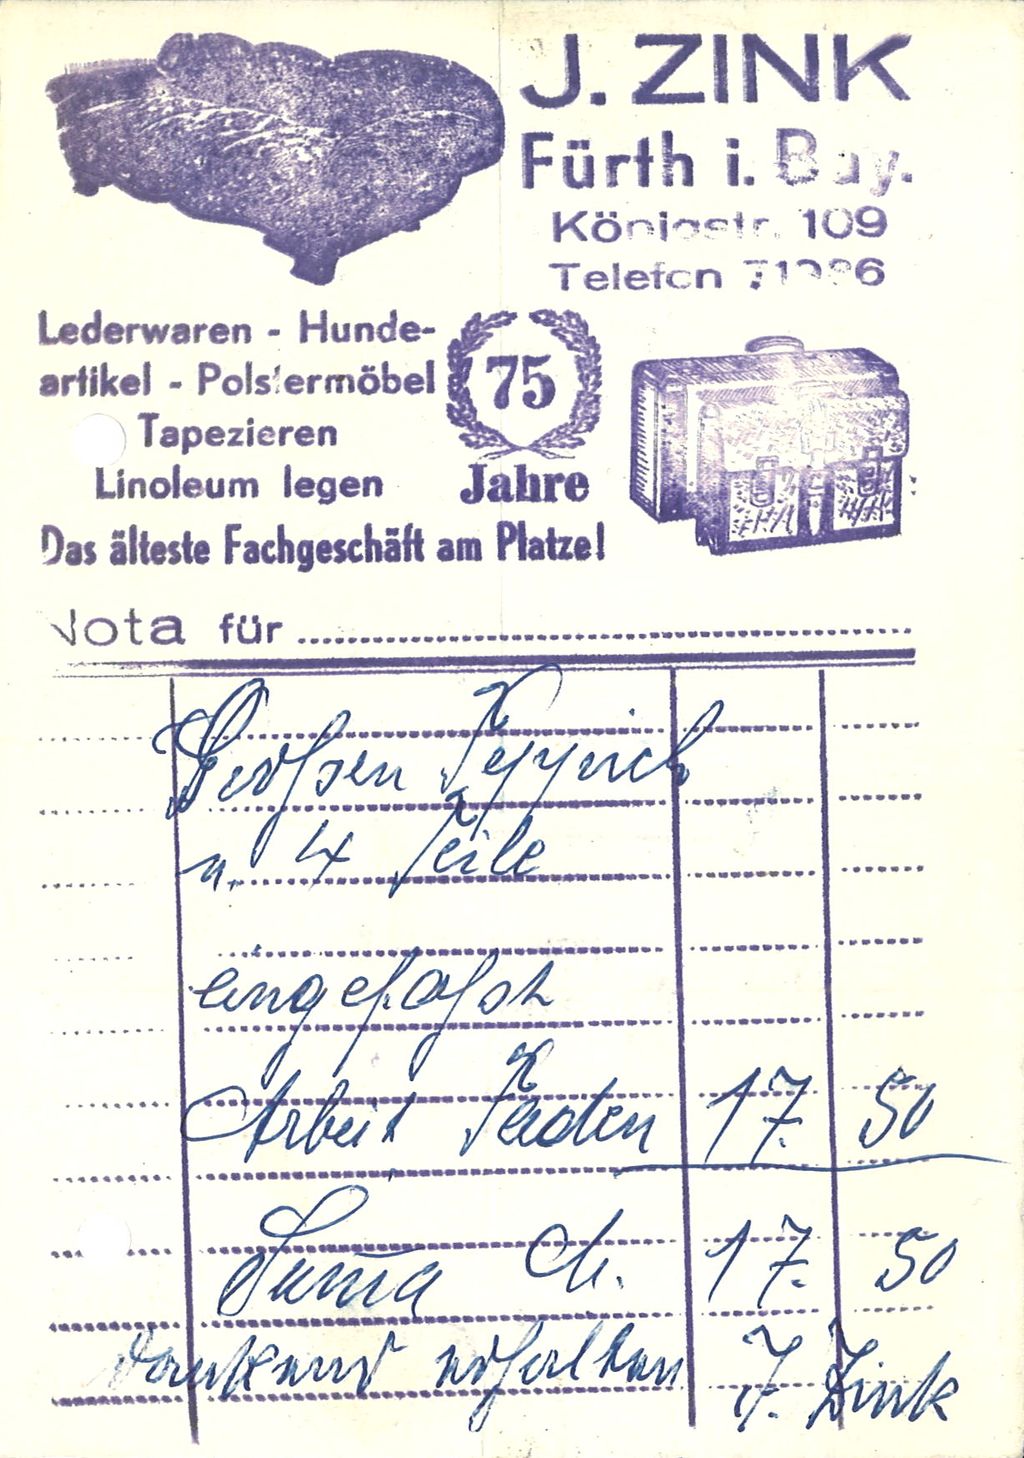 J. ZINK
Fürth i. Bay.
Königstr. 109
Telefon
Lederwaren - Hunde-
artikel - Polstermöbel
Tapezieren
Linoleum legen
75
Jahre
Das älteste Fachgeschäft am Platze!
Nota für
Großen Teppich
u. 4 Teile
eingefaßt
Arbeit Faden 17. 50
Suma M. 17. 50
dankend erhalten J. Zink